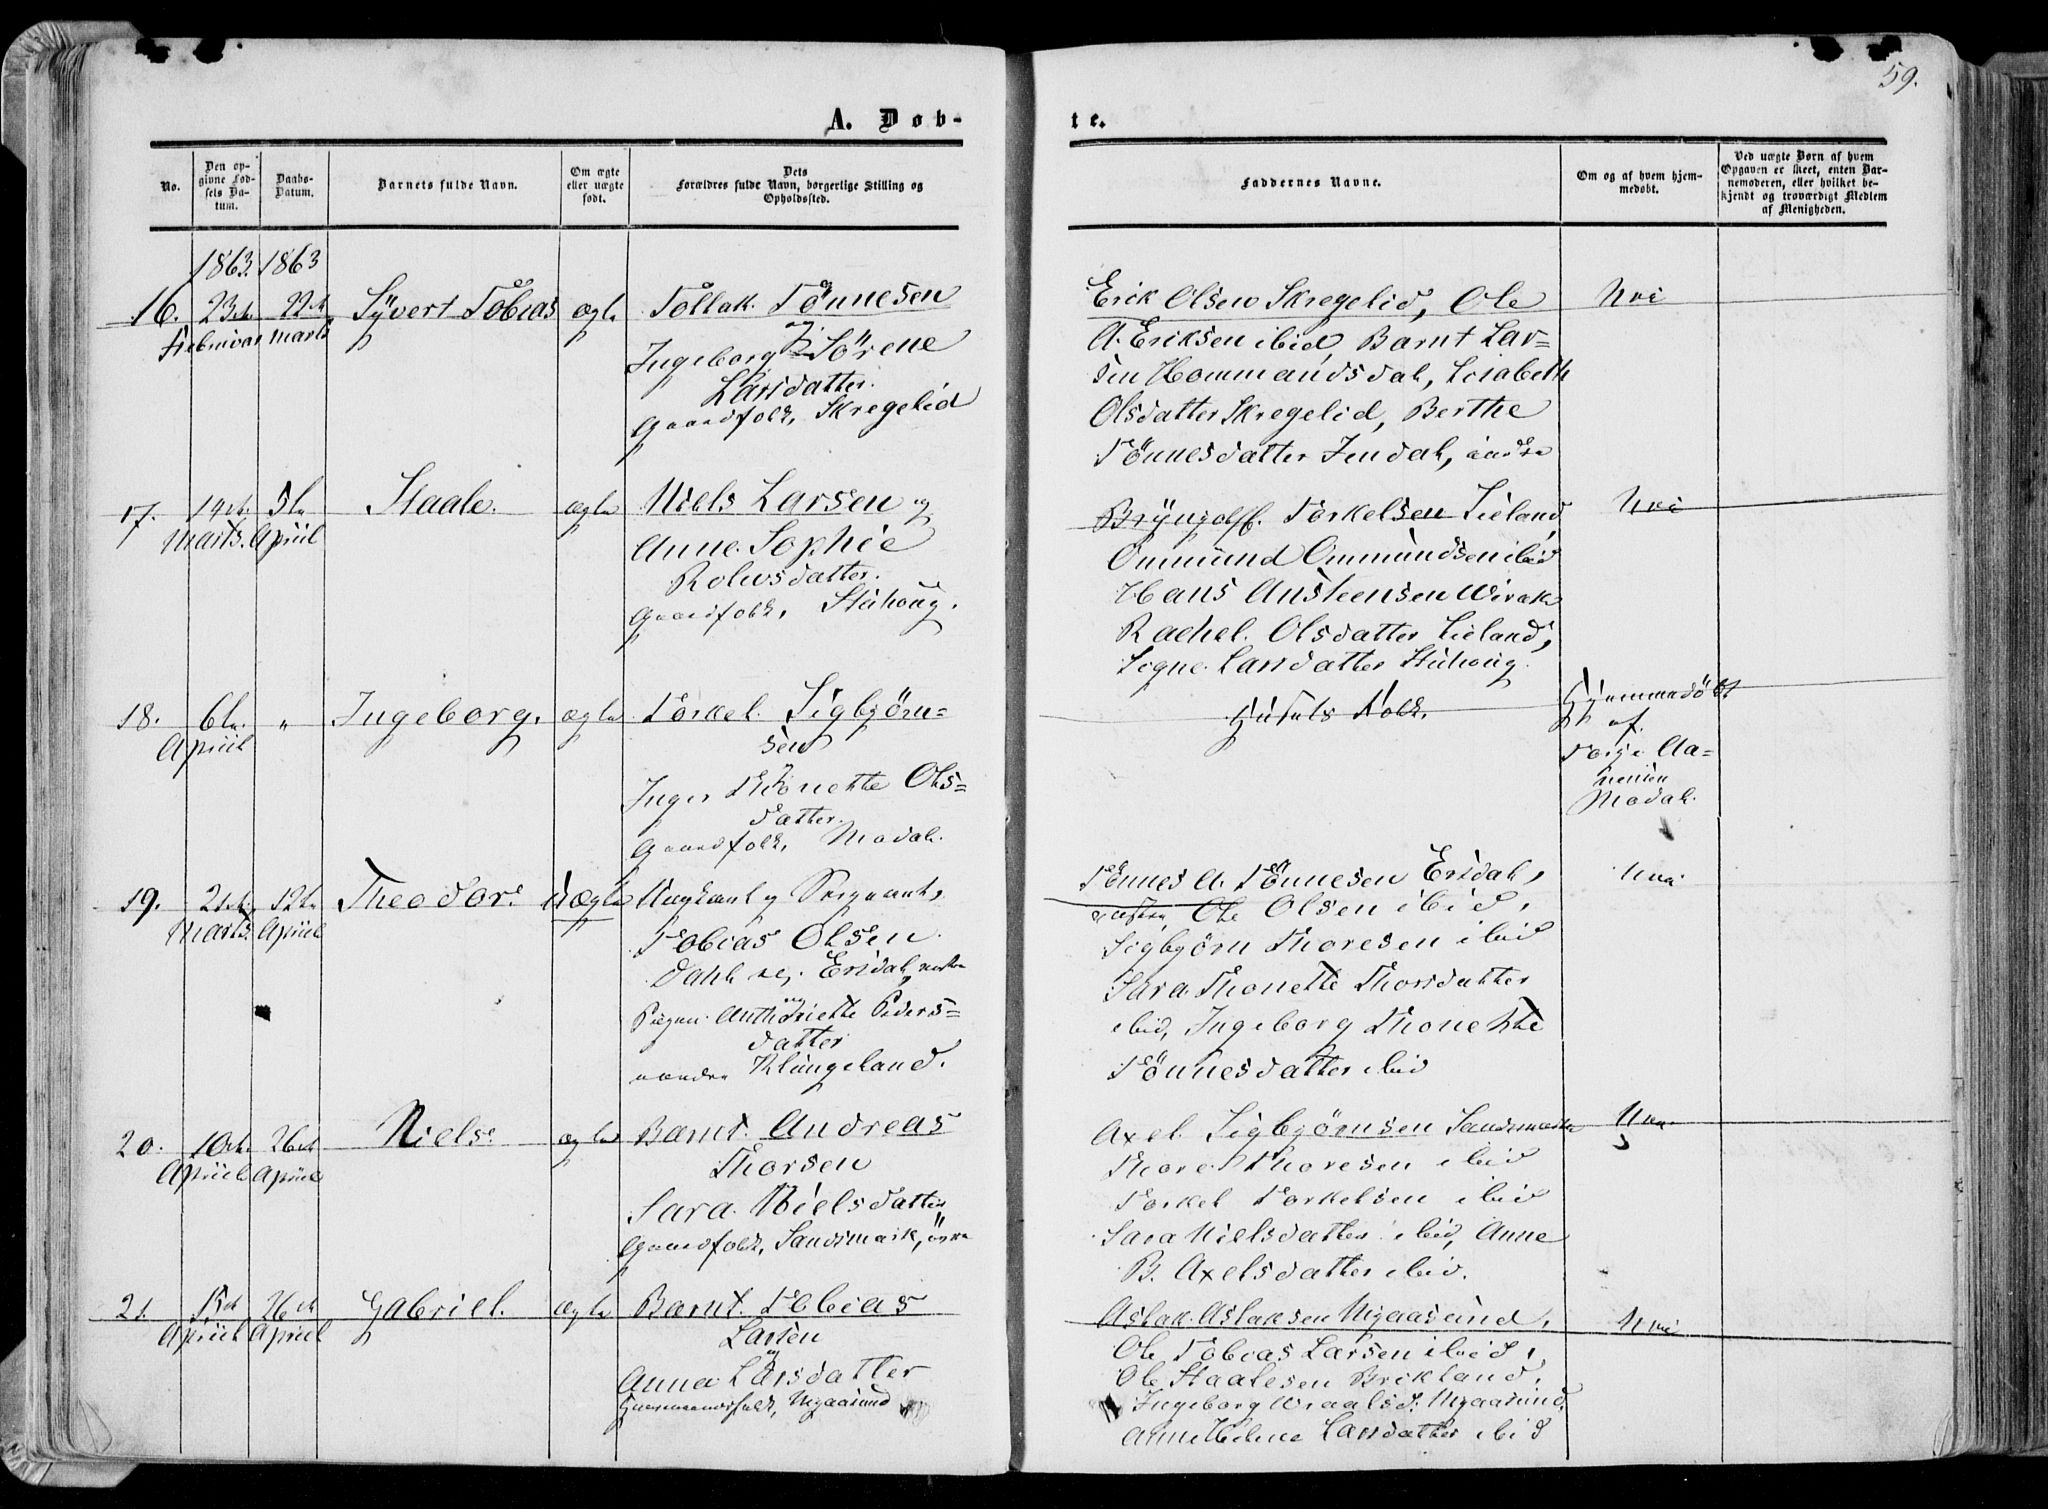 59.
A. Døb-
te.
No.
Den op-
givne Fød-
sels Da-
tum.
Daabs-
Datum.
Barnets fulde Navn.
Om ægte
eller uægte
født.
Dets
Forældres fulde Navn, borgerlige Stilling og
Opholdssted.
Faddernes Navne.
Om og af hvem hjem-
medøbt.
Ved uægte Børn af hvem
Opgaven er skeet, enten Bar-
nemoderen, eller hvilket be-
kjendt og troværdigt Medlem
af Menigheden.
1863. 1863
16. 23de 22de Syvert Tobias ægte Tollak Tönnesen
Februar Marts og
Ingeborg Sörene
Larsdatter.
Gaardfolk, Skregelid
Erik Olsen Skregelid, Ole
A. Eriksen ibid, Bernt Lar=
sen Hommandsdal, Lisabeth
Olsdatter Skregelid, Berthe
Tönnesdatter
Nei
17. 14de 5te Staale. ægte Niels Larsen og
Marts. April Anne Sophie
Gaardfolk, Stuhoug.
Bryngolf Torkelsen Lieland,
Ommund Ommundsen ibid
Hans Austeensen Wirak
Rachel Olsdatter Lieland,
Signe Larsdatter Stuhoug.
Nei
18. 6te " Ingeborg. ægte Torkel Sigbjörn=
April sen
Inger Thonette Ols=
datter.
Gaardfolk, Modal.
Husets Folk.
Hjemmedöbt
af
Aa=
nensen
Modal.
19. 21de 12te Theodor. Uægte Ungkarl og Sergeant,
Marts. April Tobias Olsen
Dahl Eisdal,
og
Pigen Anthoniette Peders=
datter
Klungeland.
Tönnes A. Tönnesen Eisdal,
Ole Olsen ibid,
Sigbjörn Thoresen ibid
Sara Thonette Thorsdatter
ibid, Ingeborg Thonette
Tönnesdatter ibid
Nei
20. 10de 26de Niels. ægte Bernt Andreas
April April Thorsen
Sara Nielsdatter
Gaardfolk, Sandsmark,
Axel Sigbjörnsen Sandsmark
Thore Thoresen ibid
Torkel Torkelsen ibid
Sara Nielsdatter ibid, Anne
B. Axelsdatter ibid.
Nei
21. 26de Gabriel. ægte Bernt Tobias
April April Larsen
og
Anna Larsdatter
Huusmandsfolk, Mgaasund
Aslak Aslaksen Mgaasund,
Ole Tobias Larsen ibid,
Ole Staalesen Brekland,
Ingeborg Mgaasund,
Anne Helene Larsdatter ibid
Nei